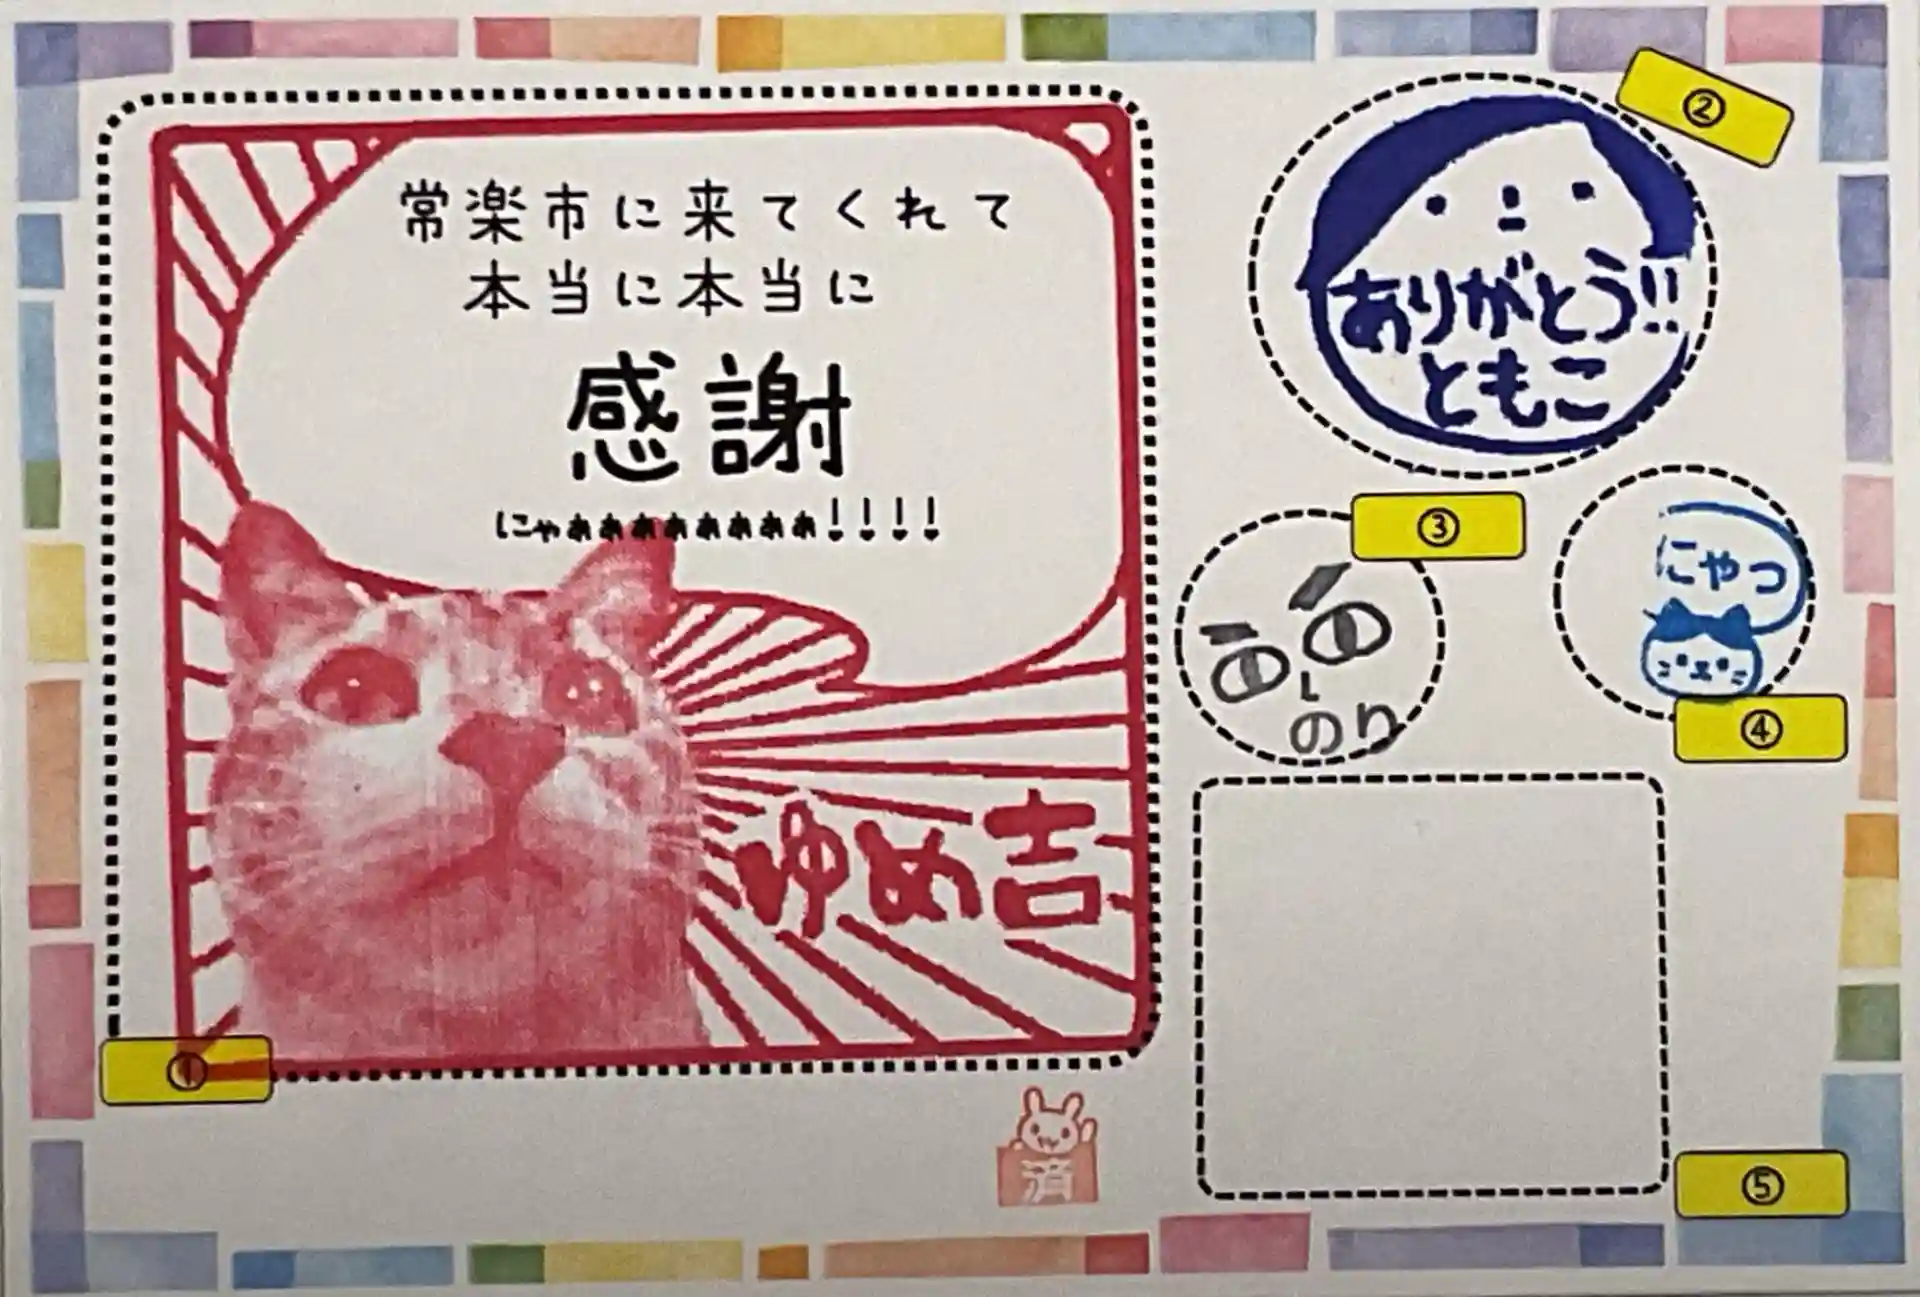 常楽市に来てくれて
本当に本当に
感謝
にゃぁぁぁぁぁぁぁぁ!!!!
ゆめ吉
①
②
ありがとう!!
ともこ
③
のり
にゃっ
④
済
⑤